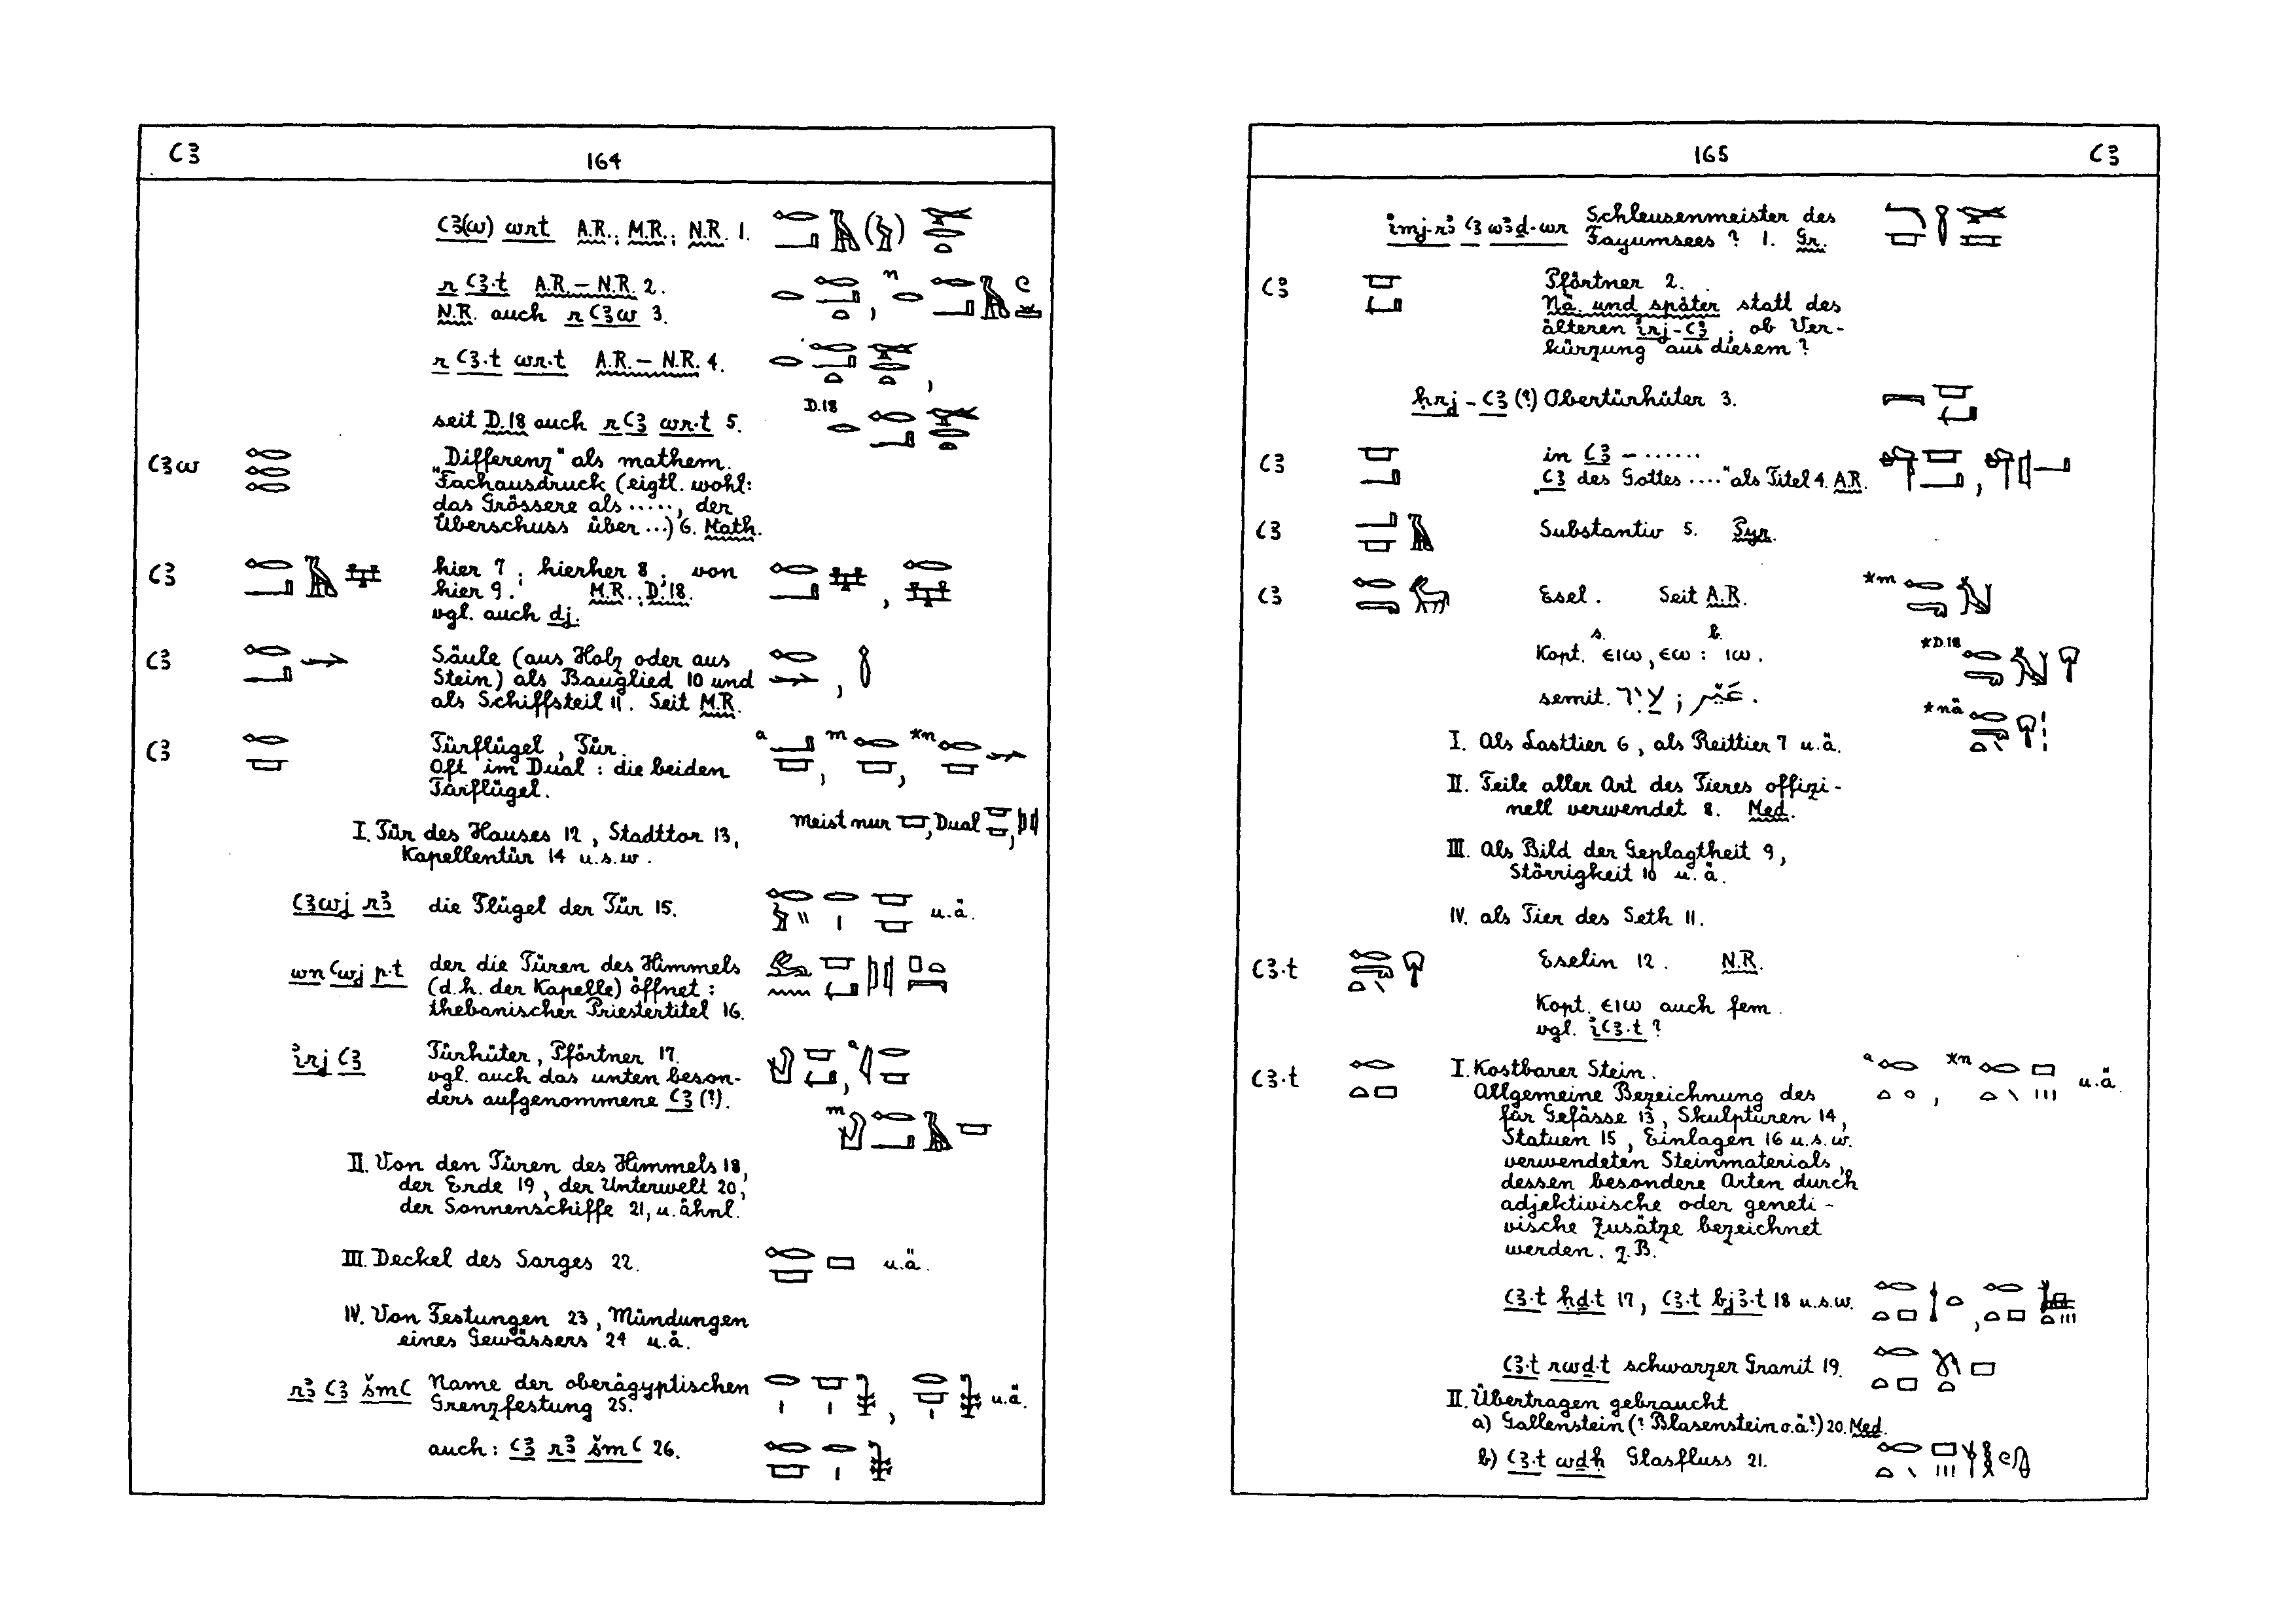 ꜥꜣ 164
ꜥꜣ(w) wrt A.R.; M.R.; N.R. 1.
r ꜥꜣ·t A.R. – N.R. 2.
N.R. auch r ꜥꜣw 3.
r ꜥꜣ·t wr·t A.R. – N.R. 4.
seit D.18 auch r ꜥꜣ wr·t 5. D.18
ꜥꜣw „Differenz“ als mathem.
Fachausdruck (eigtl. wohl:
das Grössere als ....., der
Überschuss über ...) 6. Math.
ꜥꜣ hier 7; hierher 8; von
hier 9. M.R.; D.18.
vgl. auch dj.
ꜥꜣ Säule (aus Holz oder aus
Stein) als Bauglied 10 und
als Schiffsteil 11. Seit M.R.
ꜥꜣ Türflügel, Tür. a m *n
Oft im Dual: die beiden
Türflügel.
meist nur , Dual
I. Tür des Hauses 12, Stadttor 13,
Kapellentür 14 u.s.w.
ꜥꜣwj rꜣ die Flügel der Tür 15. u.ä.
wn ꜥwj p·t der die Türen des Himmels
(d.h. der Kapelle) öffnet:
thebanischer Priestertitel 16.
irj ꜥꜣ Türhüter, Pförtner 17. a
vgl. auch das unten beson-
ders aufgenommene ꜥꜣ (?).
m
II. Von den Türen des Himmels 18,
der Erde 19, der Unterwelt 20,
der Sonnenschiffe 21, u. ähnl.
III. Deckel des Sarges 22. u.ä.
IV. Von Festungen 23, Mündungen
eines Gewässers 24 u.ä.
rꜣ ꜥꜣ šmꜥ Name der oberägyptischen
Grenzfestung 25. u.ä.
auch: ꜥꜣ rꜣ šmꜥ 26.
165 ꜥꜣ
imj-rꜣ ꜥꜣ wꜣḏ-wr Schleusenmeister des
Fayumsees? 1. Gr.
ꜥꜣ Pförtner 2.
Nä. und später statt des
älteren irj-ꜥꜣ; ob Ver-
kürzung aus diesem?
ḥrj-ꜥꜣ (?) Obertürhüter 3.
ꜥꜣ in ꜥꜣ – ......
„ꜥꜣ des Gottes ....“ als Titel 4. A.R.
ꜥꜣ Substantiv 5. Pyr.
ꜥꜣ Esel. Seit A.R. *m
s. b.
Kopt. ⲉⲓⲱ, ⲉⲱ : ⲓⲱ. *D.18
semit. עיר ; عَيْر.
*nä
I. Als Lasttier 6, als Reittier 7 u.ä.
II. Teile aller Art des Tieres offizi-
nell verwendet 8. Med.
III. Als Bild der Geplagtheit 9,
Störrigkeit 10 u.ä.
IV. als Tier des Seth 11.
ꜥꜣ·t Eselin 12. N.R.
Kopt. ⲉⲓⲱ auch fem.
vgl. iꜥꜣ·t?
ꜥꜣ·t I. Kostbarer Stein. a *n u.ä.
Allgemeine Bezeichnung des
für Gefässe 13, Skulpturen 14,
Statuen 15, Einlagen 16 u.s.w.
verwendeten Steinmaterials,
dessen besondere Arten durch
adjektivische oder geneti-
vische Zusätze bezeichnet
werden. z.B.
ꜥꜣ·t ḥḏ·t 17, ꜥꜣ·t bjꜣ·t 18 u.s.w.
ꜥꜣ·t rwḏ·t schwarzer Granit 19.
II. Übertragen gebraucht
a) Gallenstein (? Blasenstein o.ä?) 20. Med.
b) ꜥꜣ·t wdḥ Glasfluss 21.